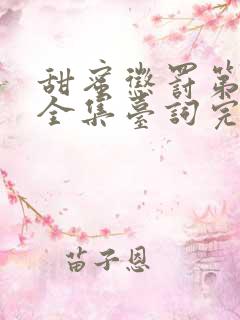 甜蜜懲罰第
全集臺詞完
苗子恩